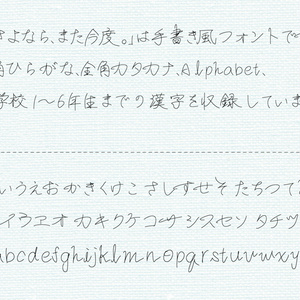 さよなら、また今度。」は手書き風フォントで
角ひらがな、全角カタカナ、Alphabet、
学校1〜6年生までの漢字を収録していま
いうえおかきくけこさしすせそたちつて
イウエオカキクケコサシスセソタチツ
abcdefghijklmnopqrstuvwxy